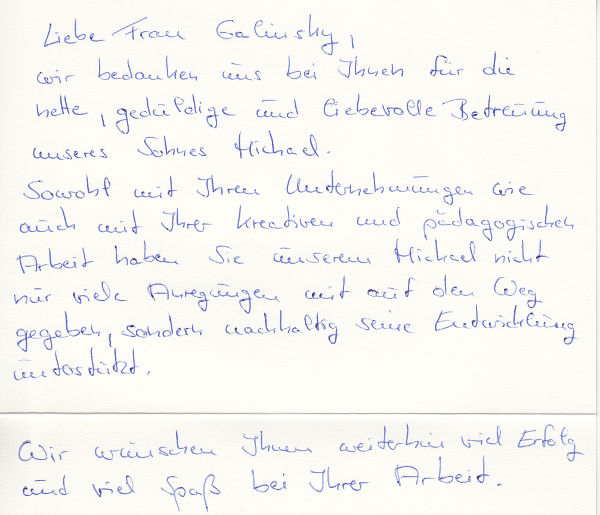 Liebe Frau Galinsky,
wir bedanken uns bei Ihnen für die
nette, geduldige und liebevolle Betreuung
unseres Sohnes Michael.
Sowohl mit Ihren Unternehmungen wie
auch mit Ihrer kreativen und pädagogischen
Arbeit haben Sie unserem Michael nicht
nur viele Anregungen mit auf den Weg
gegeben, sondern nachhaltig seine Entwicklung
unterstützt.
Wir wünschen Ihnen weiterhin viel Erfolg
und viel Spaß bei Ihrer Arbeit.